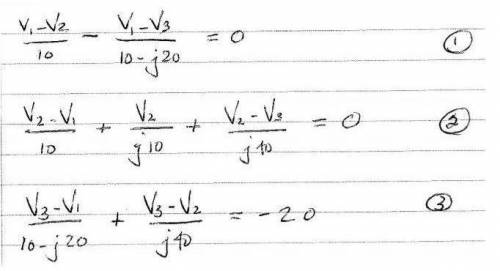 (V₁-V₂)/10 - (V₁-V₃)/(10-j20) = 0 ①
(V₂-V₁)/10 + V₂/j10 + (V₂-V₃)/j40 = 0 ②
(V₃-V₁)/(10-j20) + (V₃-V₂)/j40 = -20 ③